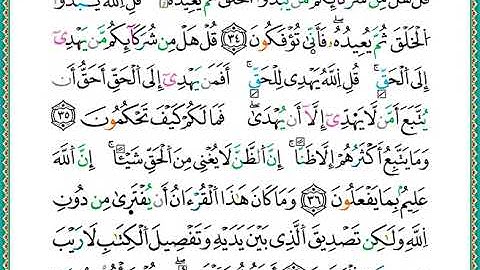 قُلْ هَلْ مِن شُرَكَآئِكُم مَّن يَبْدَؤُا۟ الْخَلْقَ ثُمَّ يُعِيدُهُۥ ۚ قُلِ اللَّهُ يَبْدَؤُا۟
الْخَلْقَ ثُمَّ يُعِيدُهُۥ ۖ فَأَنَّىٰ تُؤْفَكُونَ ﴿٣٤﴾ قُلْ هَلْ مِن شُرَكَآئِكُم مَّن يَهْدِىٓ
إِلَى الْحَقِّ ۚ قُلِ اللَّهُ يَهْدِى لِلْحَقِّ ۗ أَفَمَن يَهْدِىٓ إِلَى الْحَقِّ أَحَقُّ أَن
يُتَّبَعَ أَمَّن لَّا يَهِدِّىٓ إِلَّآ أَن يُهْدَىٰ ۖ فَمَا لَكُمْ كَيْفَ تَحْكُمُونَ ﴿٣٥﴾
وَمَا يَتَّبِعُ أَكْثَرُهُمْ إِلَّا ظَنًّا ۚ إِنَّ الظَّنَّ لَا يُغْنِى مِنَ الْحَقِّ شَيْـًٔا ۚ إِنَّ اللَّهَ
عَلِيمٌۢ بِمَا يَفْعَلُونَ ﴿٣٦﴾ وَمَا كَانَ هَٰذَا الْقُرْءَانُ أَن يُفْتَرَىٰ مِن دُونِ
اللَّهِ وَلَٰكِن تَصْدِيقَ الَّذِى بَيْنَ يَدَيْهِ وَتَفْصِيلَ الْكِتَٰبِ لَا رَيْبَ